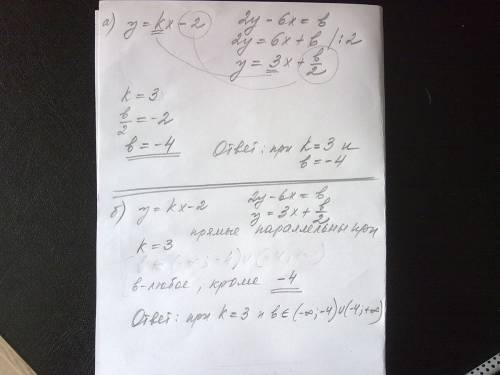 а) y = kx - 2    2y - 6x = b
2y = 6x + b / :2
y = 3x + b/2
k = 3
b/2 = -2
b = -4    Ответ: при k = 3 и
b = -4
б) y = kx - 2    2y - 6x = b
y = 3x + b/2
прямые параллельны при
k = 3
b - любое, кроме -4
Ответ: при k = 3 и b ∈ (-∞; -4) ∪ (-4; +∞)